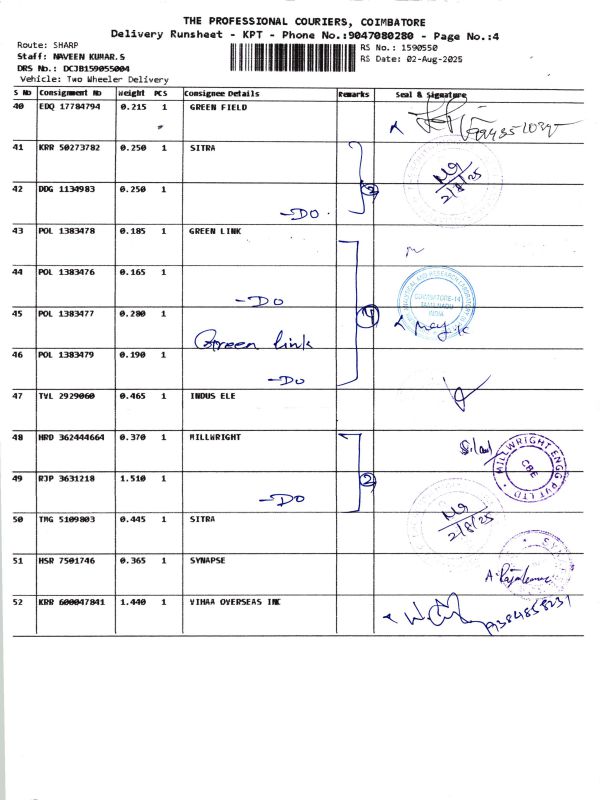 THE PROFESSIONAL COURIERS, COIMBATORE
Delivery Runsheet - KPT - Phone No.:9047080280 - Page No.:4
Route: SHARP
RS No.: 1590550
Staff: NAVEEN KUMAR.S
RS Date: 02-Aug-2025
DRS No.: DCJB159055004
Vehicle: Two Wheeler Delivery
S No Consignment No Weight PCS Consignee Details Remarks Seal & Signature
40 EDQ 17784794 0.215 1 GREEN FIELD
41 KRR 50273782 0.250 1 SITRA
2/8/25
42 DDG 1134983 0.250 1
2
-DO.
43 POL 1383478 0.185 1 GREEN LINK
44 POL 1383476 0.165 1
-DO
COIMBATORE-14
TAMILNADU
INDIA
45 POL 1383477 0.280 1
4
Green link
46 POL 1383479 0.190 1
-DO
47 TVL 2929060 0.465 1 INDUS ELE
48 HRD 362444664 0.370 1 MILLWRIGHT
MILLWRIGHT ENGG PVT LTD
CBE
49 RJP 3631218 1.510 1
2
-DO
50 TMG 5109803 0.445 1 SITRA
2/8/25
51 HSR 7501746 0.365 1 SYNAPSE
52 KRR 600047841 1.440 1 VIHAA OVERSEAS INC
9384858231